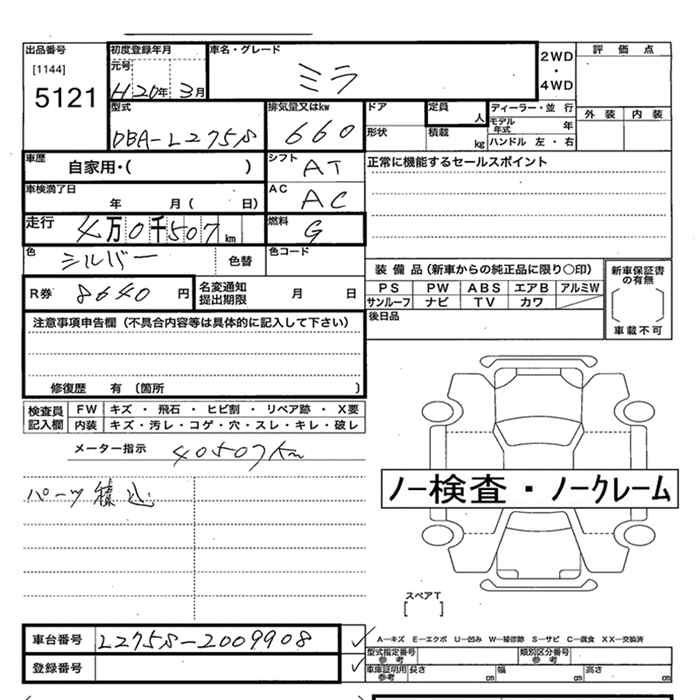 出品番号 初度登録年月 車名・グレード 2WD・4WD 評価点
[1144] 元号
5121 H20年 3月 ミラ
型式 排気量又はkw ドア 定員 人 ディーラー・並行 外装 内装
DBA-L275S 660 形状 積載 kg モデル年式 年
ハンドル 左・右
車歴 自家用・( ) シフト AT 正常に機能するセールスポイント
車検満了日 年 月( 日) AC AC
走行 4万0千507km 燃料 G
色 シルバー 色替 色コード
装備品(新車からの純正品に限り○印) 新車保証書の有無
R券 8640円 名変通知提出期限 月 日 PS PW ABS エアB アルミW
サンルーフ ナビ TV カワ [ ]
注意事項申告欄(不具合内容等は具体的に記入して下さい) 後日品 車載不可
修復歴 有 (箇所 )
検査員記入欄 FW キズ・飛石・ヒビ割・リペア跡・X要
内装 キズ・汚レ・コゲ・穴・スレ・キレ・破レ
メーター指示 40507km
パーツ積込
ノー検査・ノークレーム
スペアT
[ ]
車台番号 L275S-2009908 A−キズ E−エクボ U−凹み W−補修跡 S−サビ C−腐食 XX−交換済
型式指定番号 参考 類別区分番号 参考
登録番号 車庫証明用 参考 長さ cm 幅 cm 高さ cm